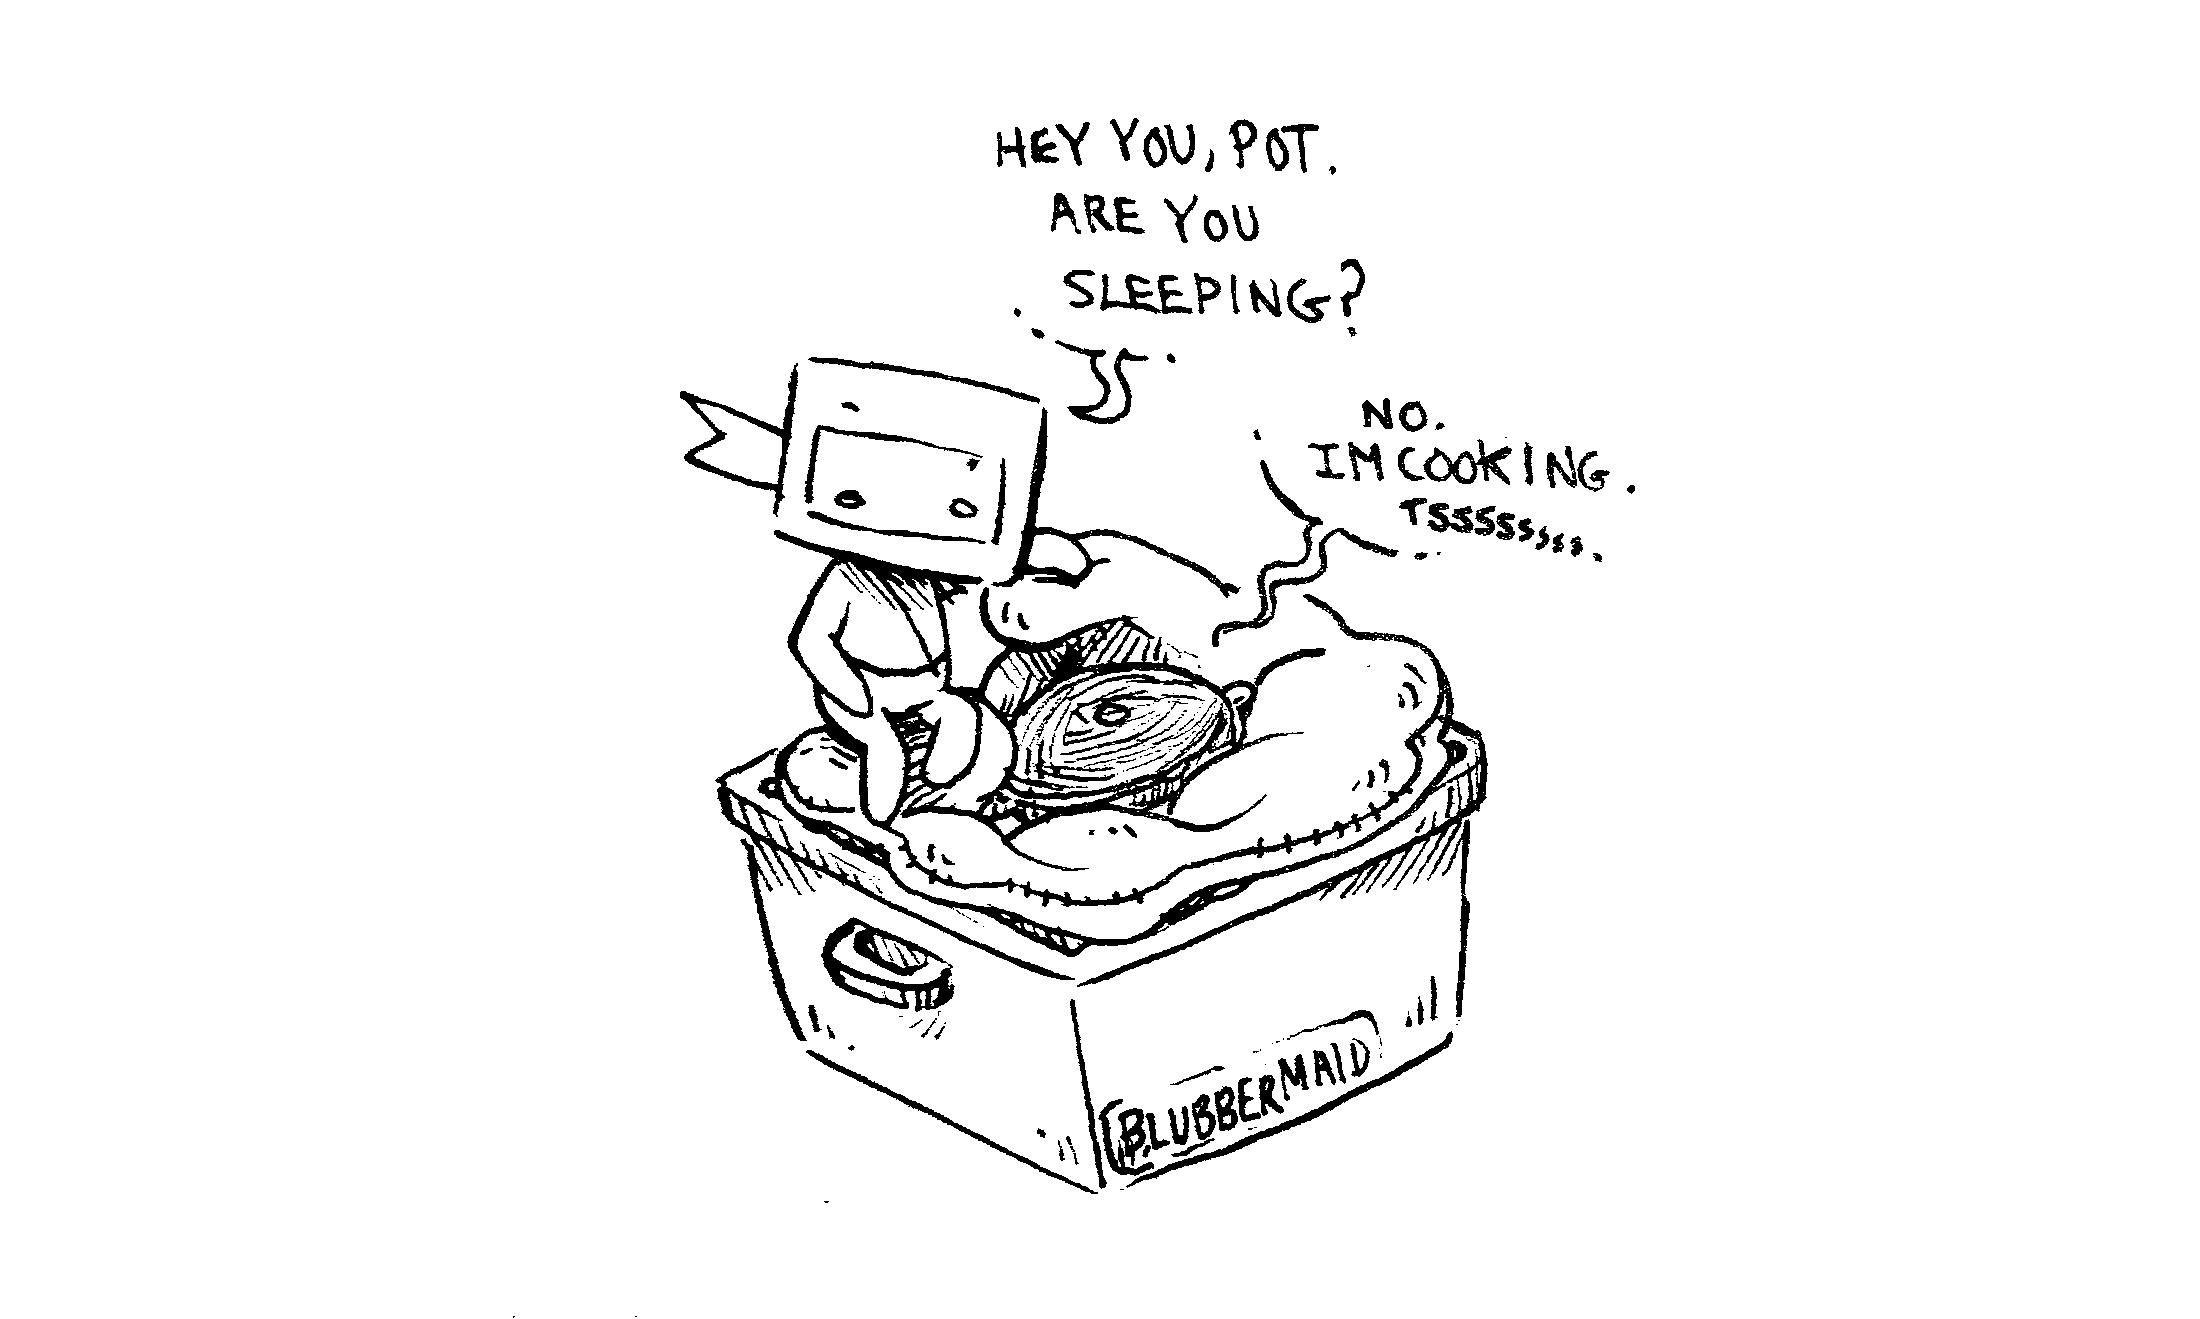 HEY YOU, POT.
ARE YOU
SLEEPING?
NO.
IM COOKING.
TSSSSSSSS.
BLUBBERMAID